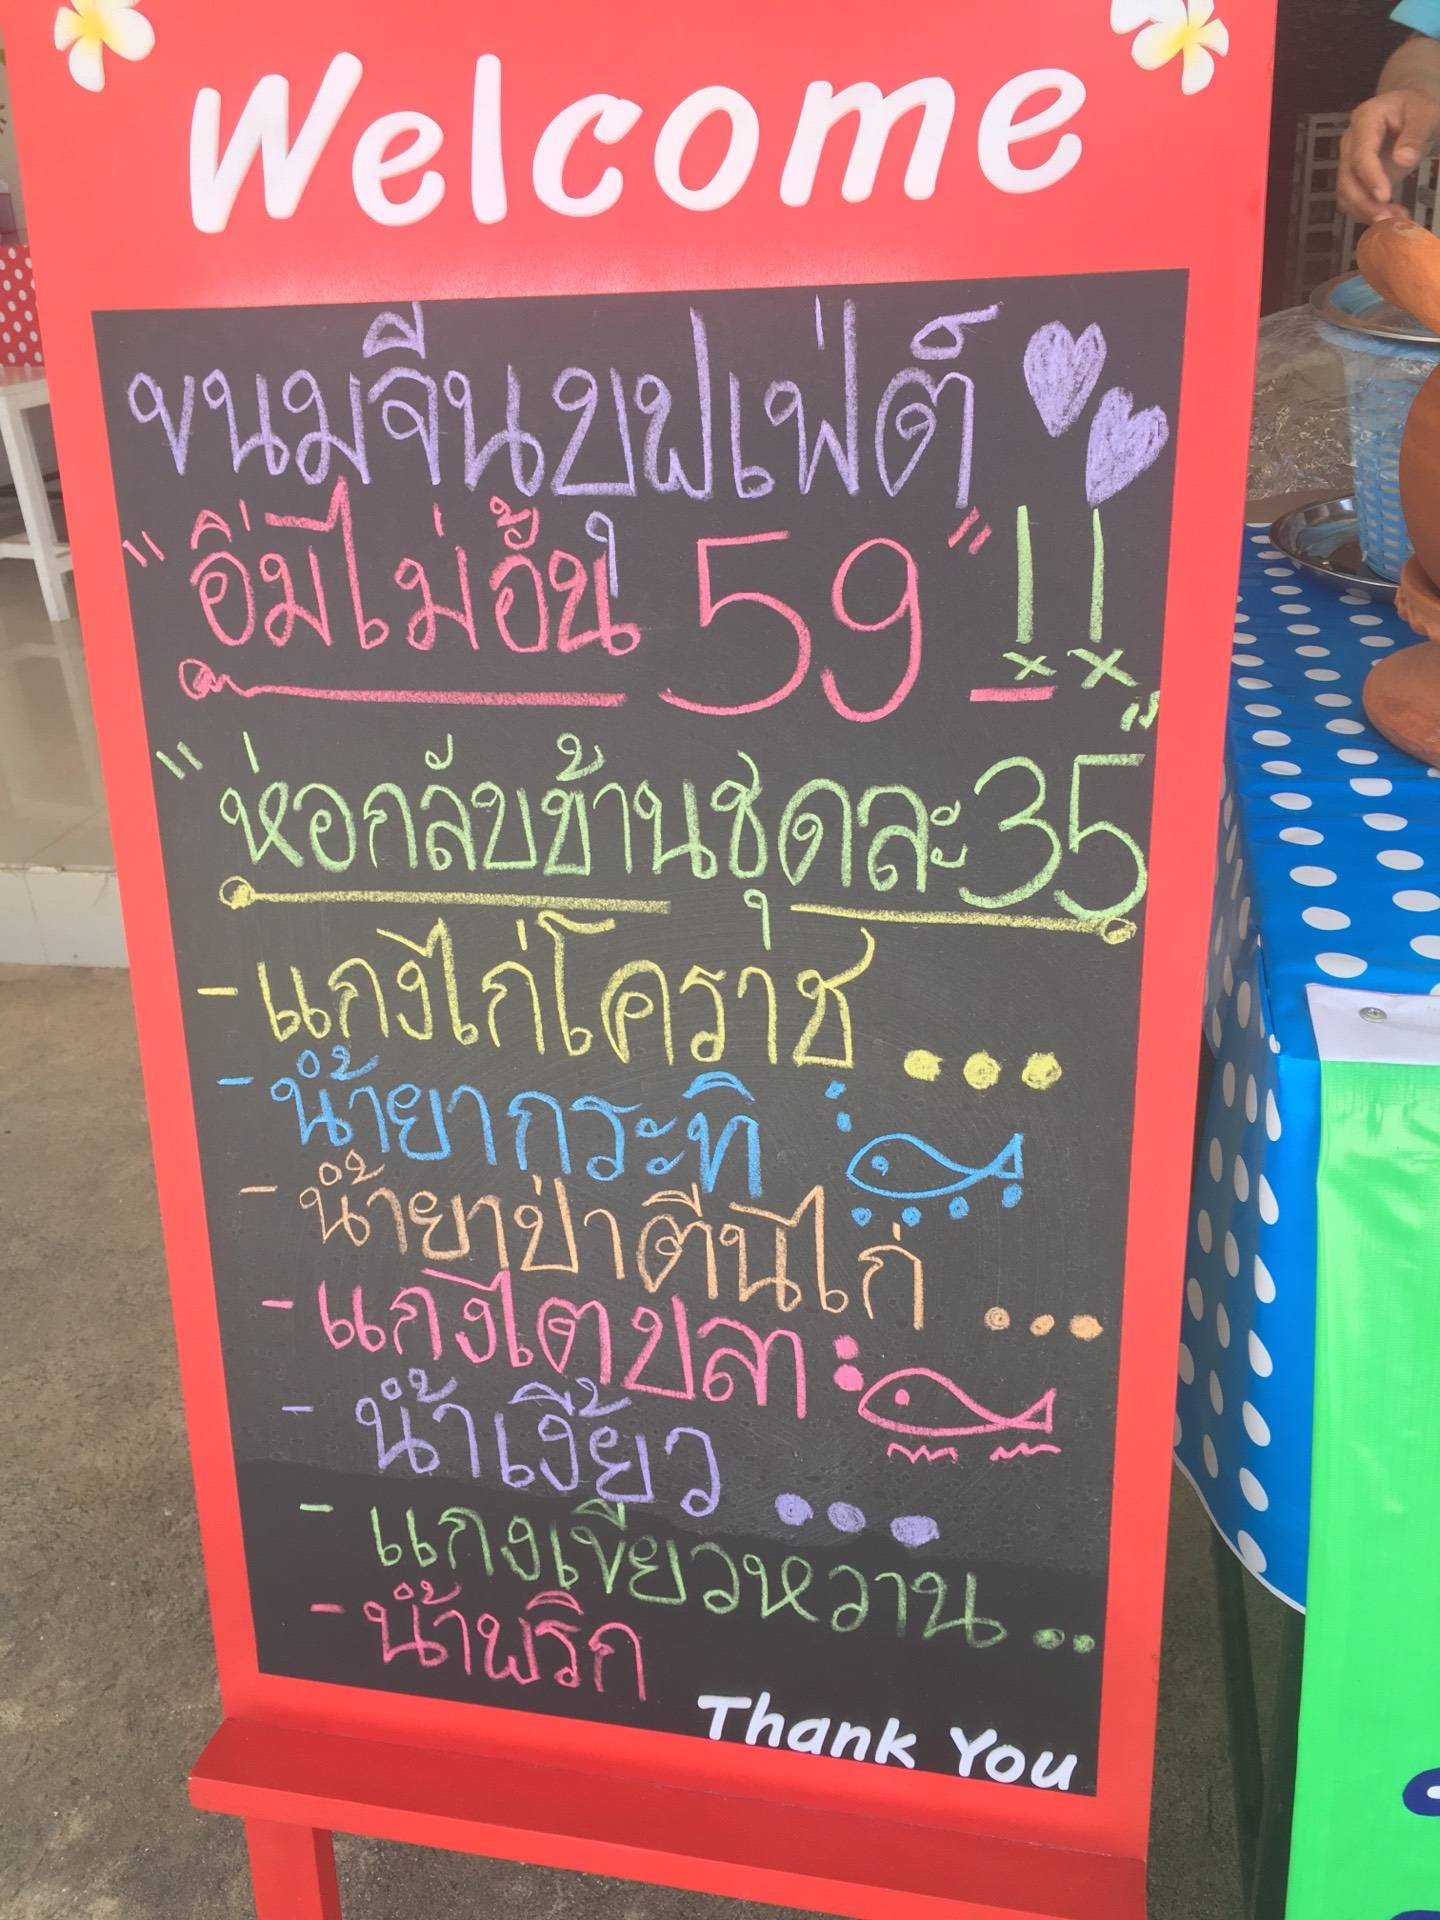 Welcome
ขนมจีนบุฟเฟ่ต์
"อิ่มไม่อั้น 59" !!
"ห่อกลับบ้านชุดละ 35"
- แกงไก่โคราช...
- น้ำยากะทิ
- น้ำยาป่าตีนไก่...
- แกงไตปลา
- น้ำเงี้ยว...
- แกงเขียวหวาน...
- น้ำพริก
Thank You